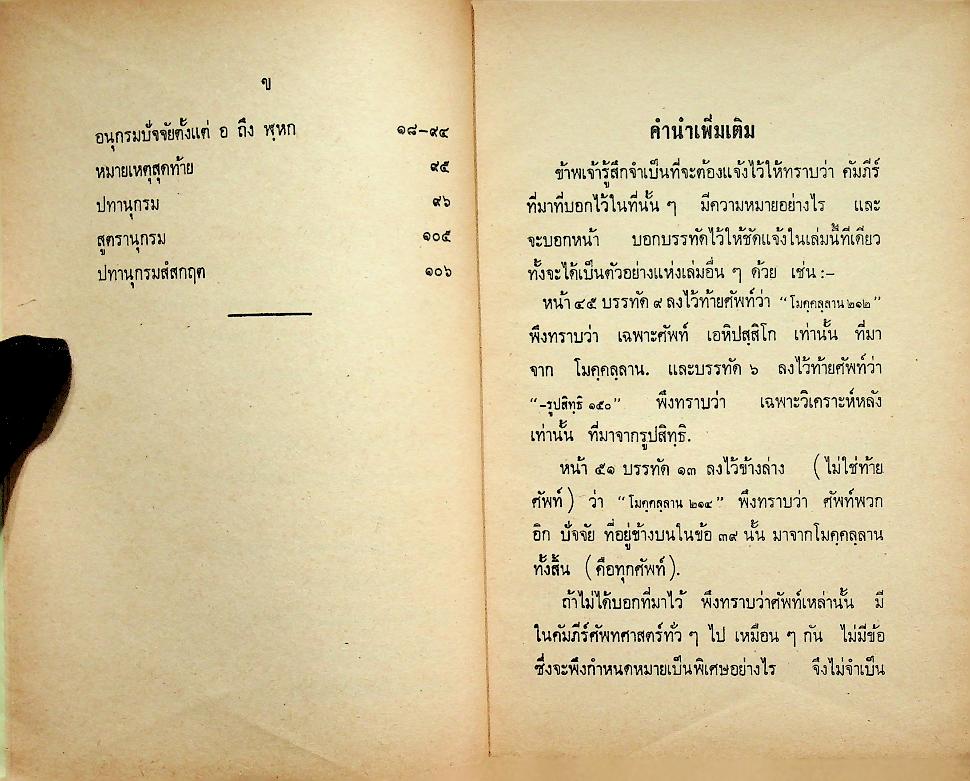 ข
อนุกรมปัจจัยตั้งแต่ อ ถึง พฺหก ๑๘–๙๔
หมายเหตุสุดท้าย ๙๕
ปทานุกรม ๙๖
สูตรานุกรม ๑๐๕
ปทานุกรมสํสกฤต ๑๐๖
คำนำเพิ่มเติม
ข้าพเจ้ารู้สึกจำเป็นที่จะต้องแจ้งไว้ให้ทราบว่า คัมภีร์
ที่มาที่บอกไว้ในที่นั้น ๆ มีความหมายอย่างไร และ
จะบอกหน้า บอกบรรทัดไว้ให้ชัดแจ้งในเล่มนี้ทีเดียว
ทั้งจะได้เป็นตัวอย่างแห่งเล่มอื่น ๆ ด้วย เช่น :–
หน้า ๔๕ บรรทัด ๙ ลงไว้ท้ายศัพท์ว่า “โมคฺคลฺลาน ๒๑๒”
พึงทราบว่า เฉพาะศัพท์ เอหิปสฺสิโก เท่านั้น ที่มา
จาก โมคฺคลฺลาน. และบรรทัด ๖ ลงไว้ท้ายศัพท์ว่า
“–รูปสิทฺธิ ๑๕๐” พึงทราบว่า เฉพาะวิเคราะห์หลัง
เท่านั้น ที่มาจากรูปสิทฺธิ.
หน้า ๕๑ บรรทัด ๑๓ ลงไว้ข้างล่าง (ไม่ใช่ท้าย
ศัพท์) ว่า “โมคฺคลฺลาน ๒๑๔” พึงทราบว่า ศัพท์พวก
อิก ปัจจัย ที่อยู่ข้างบนในข้อ ๓๙ นั้น มาจากโมคฺคลฺลาน
ทั้งสิ้น (คือทุกศัพท์).
ถ้าไม่ได้บอกที่มาไว้ พึงทราบว่าศัพท์เหล่านั้น มี
ในคัมภีร์ศัพทศาสตร์ทั่ว ๆ ไป เหมือน ๆ กัน ไม่มีข้อ
ซึ่งจะพึงกำหนดหมายเป็นพิเศษอย่างไร จึงไม่จำเป็น